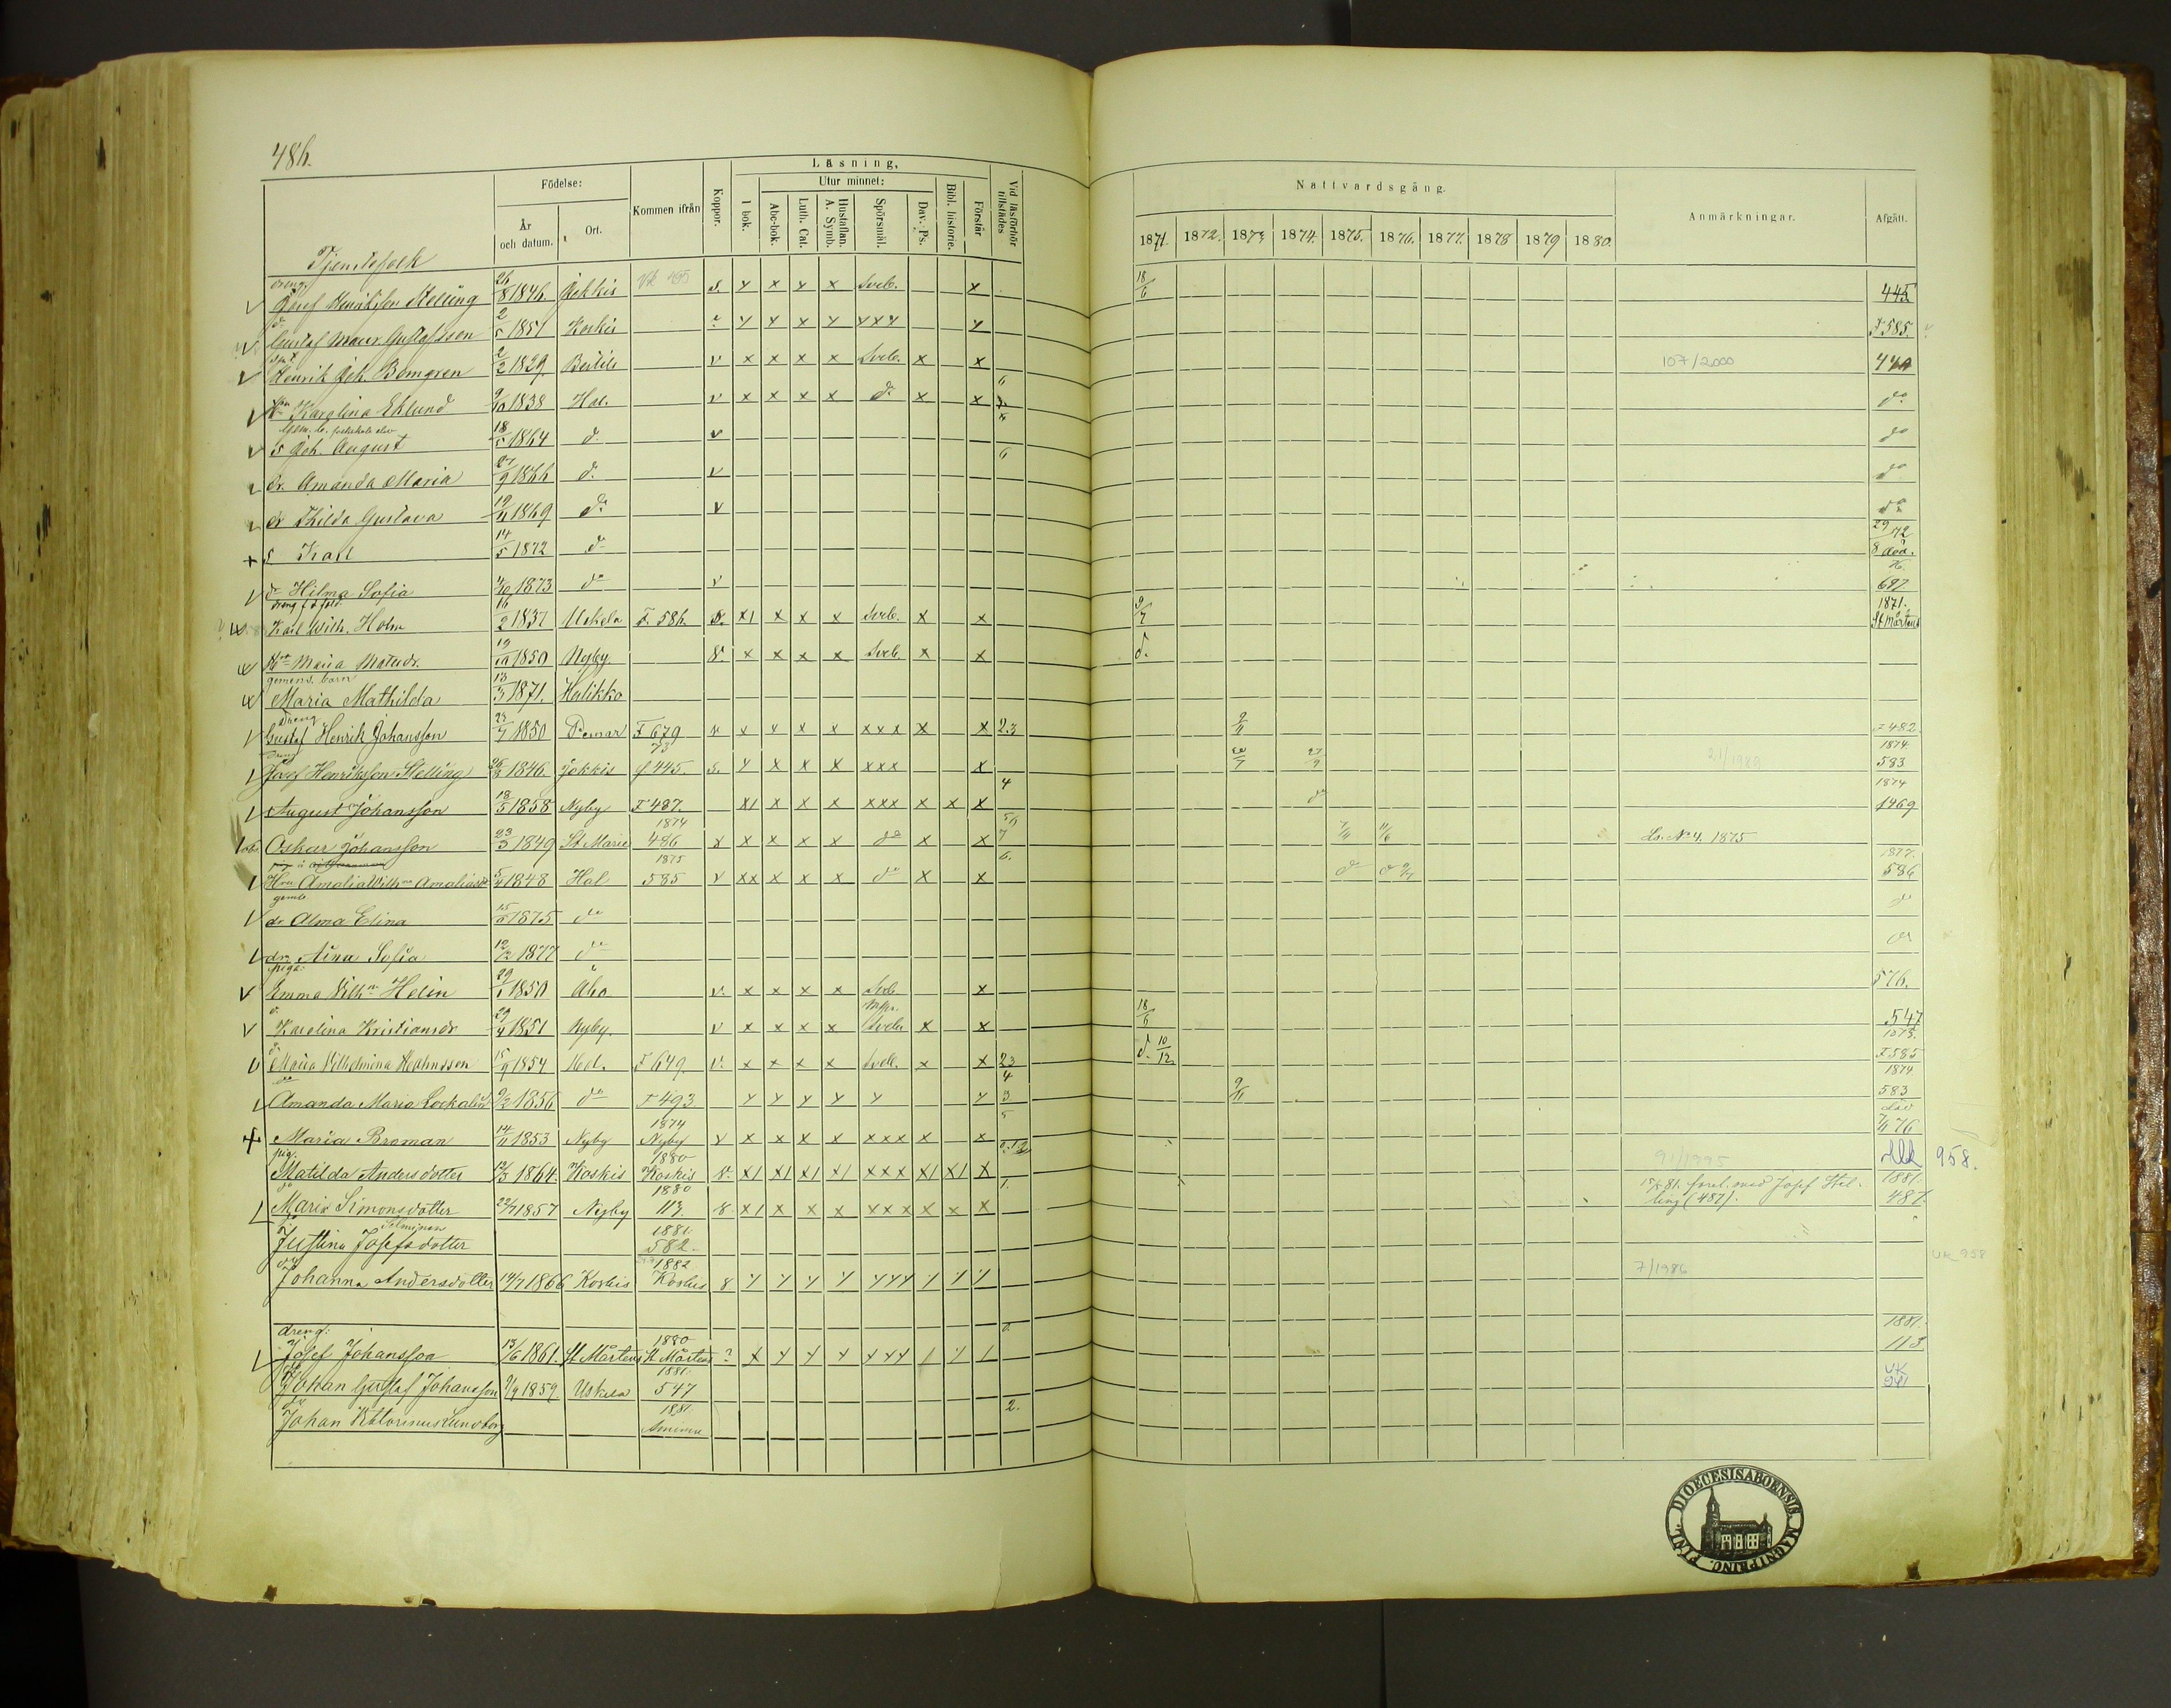 486.
Födelse:
Läsning,
Utur minnet:
År och datum.
Ort.
Kommen ifrån
Koppor.
I bok.
Abc-bok.
Luth. Cat.
Hustaflan. A. Symb.
Spörsmål.
Dav. Ps.
Bibl. historie.
Förstår
Vid läsförhör tillstädes
Nattvardsgång.
1871. 1872. 1873 1874. 1875. 1876. 1877. 1878 1879 1880.
Anmärkningar.
Afgått.
Tjenstefolk
dreng.
Josef Henriksson Stelling 26/8 1846. Jokkis s. x x x x Sveb. x 18/6 445
do
Gustaf Maur. Gustafsson 2/5 1851 Koskis x x x x xxx x F 585.
Henrik Joh. Bomgren 2/2 1829. Bertils v x x x x Sveb. x x 107/2000
Karolina Eklund 9/10 1838 Hal. v x x x x do x x do
s Joh. August 18/5 1864 d. v do
dr. Amanda Maria 27/9 1866 d. v do
dr Hilda Gustava 19/11 1869 do v do
s Karl 14/5 1872 d 29/8 72 död.
dr Hilma Sofia 4/10 1873 do v 697
Karl Wilh. Holm 16/2 1837 Uskela F. 586 x1 x x x Sveb. x x 9/7 1871. St Mårtens
Maria Matsdr. 19/10 1850 Nyby. x x x x Sveb. x x d.
gemens. barn
Maria Mathilda 13/3 1871. Halikko
dreng
Gustaf Henrik Johansson 23/7 1850 Pemar F 679 v x x x x xxx x x 2.3 9/11 F 482
dreng 73 1874
Josef Henriksson Stelling 26/8 1846 Jokkis f 445. s. x x x x xxx x 27/9 21/1989 583
4 1874
August Johansson 18/5 1858 Nyby F 487. x1 x x x xxx x x x do 1469
1874
Oskar Johansson 23/3 1849 St Marie 486 x x x x x do x x 7 11/6 Ls. No 4. 1875
1875 6. 1877.
Hru Amalia Wilhna 5/4 1848 Hal 585 v xx x x x do x x do 586
gemb
dr Alma Elina 15/5 1875 do do
dr. Aina Sofia 12/2 1877 do do
piga:
Emma Wilhna Helin 29/1 1850 Åbo v. x x x x Sveb x 576.
d.
Karolina Kristiansdr 29/4 1851 Nyby. v x x x x Sveb x x 18/6 547
d. 1875.
Maria Vilhelmina 15/9 1854 Hal. F 649. v. x x x x Sveb. x x 23 d. 10/12 F 585
do 4 1874
Amanda Maria 9/2 1856 do F 493 x x x x x x 3 9/11 583
1874 5 död
Maria Broman 14/11 1853 Nyby Nyby v x x x x xxx x x 7/11 76
pig. 1880 91/1995
Matilda Andersdotter 12/3 1864. Koskis Koskis x1 x1 x1 x1 xxx x1 x1 x 958.
do 1880 1. 1881.
Maria Simonsdotter 22/7 1857 Nyby 113. x1 x x x xxx x x x 15/5 81. forel. med Josef Stelling (487). 487
Salminen 1881.
Justina Josefsdotter 582.
1882
Johanna Andersdotter 14/7 1866 Koskis Koskis x x x x xxx x x x 7/1986 UK 958
dreng: 1880 1881.
Josef Johansson 13/6 1861. St Mårtens St Mårtens ? x x x x xxx 1 x 1 113
do 1881.
Johan Gustaf Johansson 9/9 1859. Uskela 547 UK 941
do 1881 2.
Johan Lundborg
DIOECESIS ABOENSIS MAGNI PRINC. FINL.